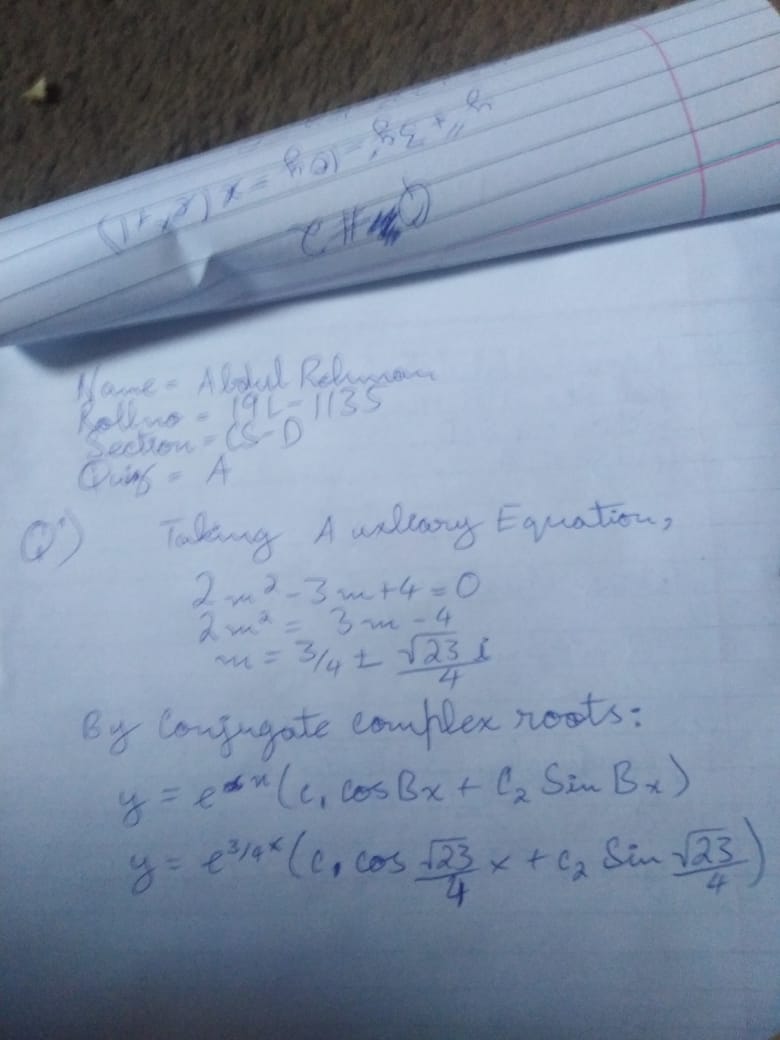 y'' + 3y' - 10y = x(eˣ+1)
Q#
Name = Abdul Rehman
Rollno = 19L-1135
Section = CS-D
Quiz = A
Q1) Taking Auxleary Equation,
2m² - 3m + 4 = 0
2m² = 3m - 4
m = 3/4 ± √23/4 i
By Conjugate complex roots:
y = e^αx (c₁ cosBx + C₂ Sin Bx)
y = e^3/4x (c₁ cos √23/4 x + c₂ Sin √23/4)